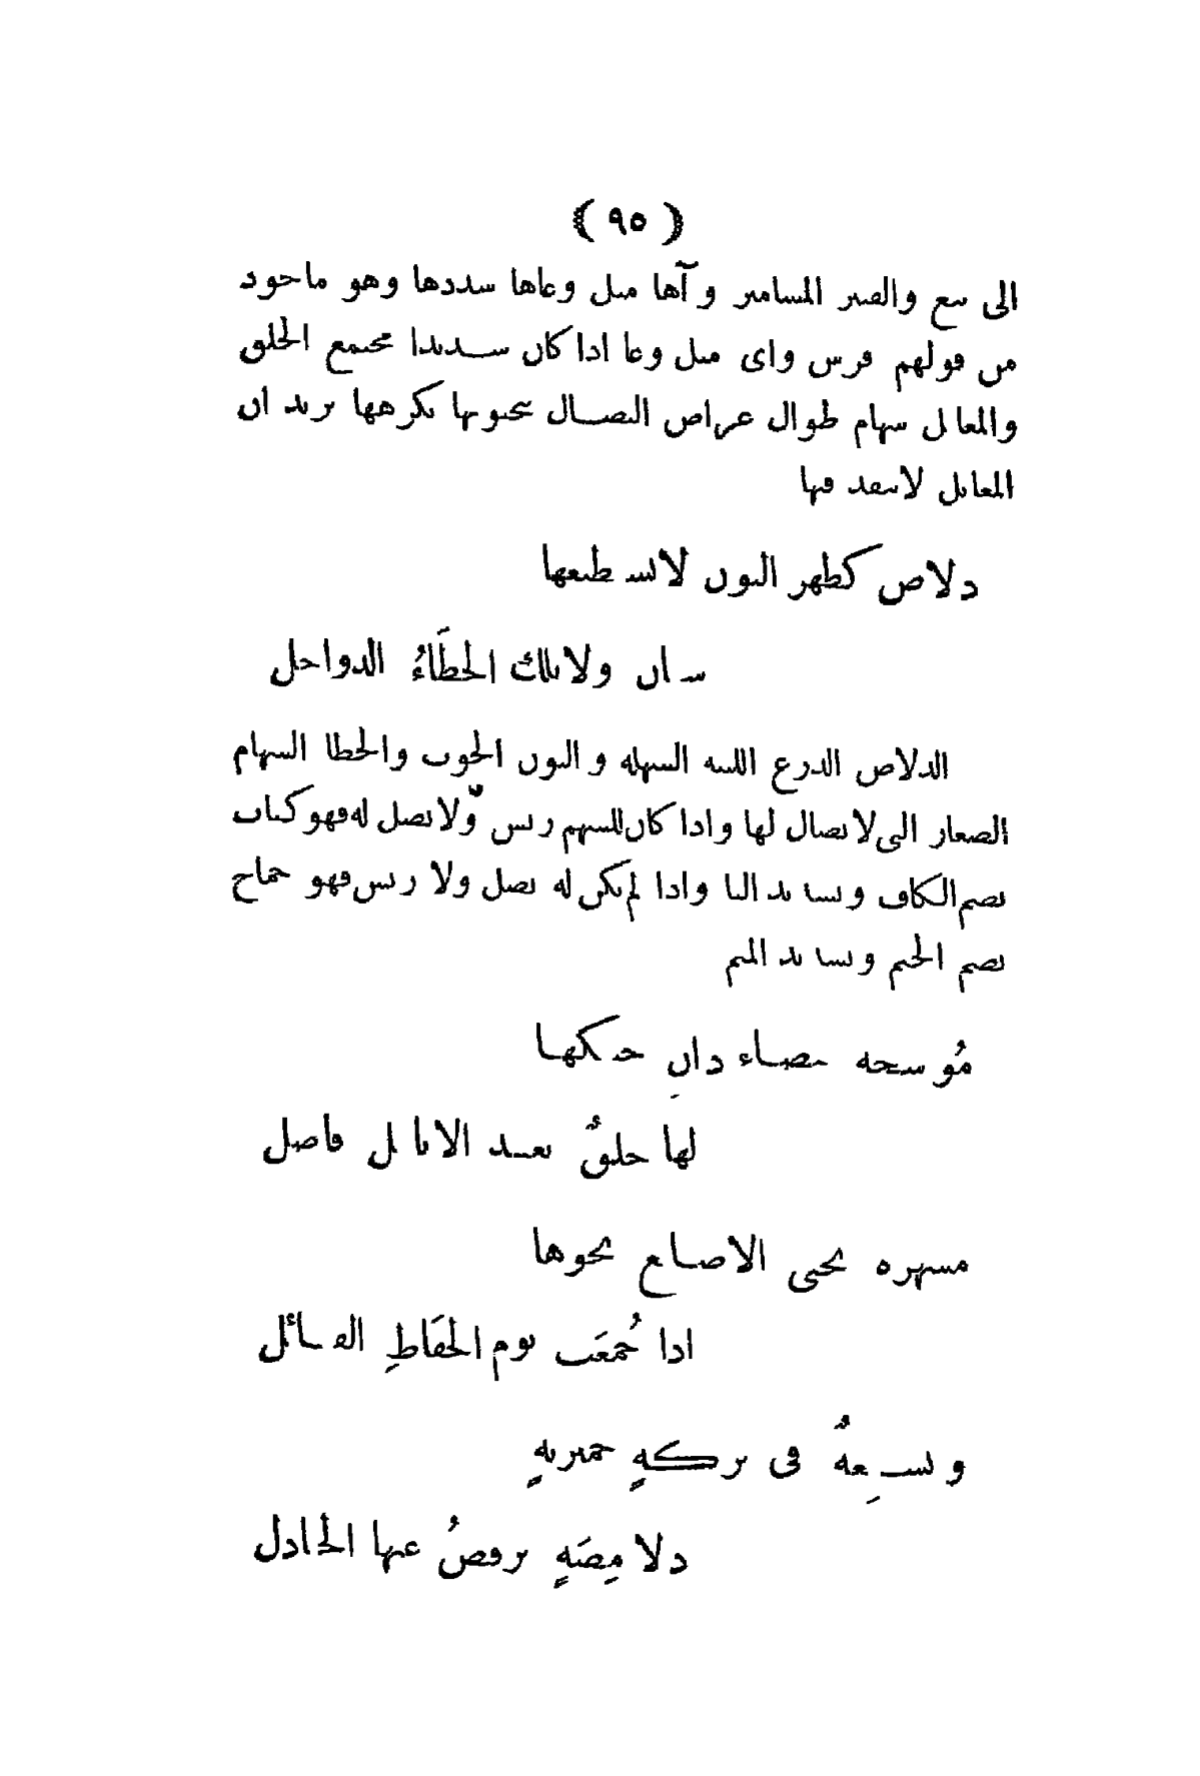 ﴿ ٩٥ ﴾
الى تبع والقتير المسامير وآها مثل وعاها شددها وهو ماخوذ
من قولهم فرس واى مثل وعا اذا كان شديدا مجتمع الخلق
والمعابل سهام طوال عراض النصال تجتويها تكرهها يريد ان
المعابل لاتنفذ فيها
دلاص كظهر النون لايستطيعها
سنان ولاتلك الحظَاءُ الدواخل
الدلاص الدرع اللينة السهلة والنون الحوت والحظا السهام
الصغار التى لانصال لها واذا كان للسهم ريش ولانصل له فهو كتاب
بضم الكاف وتشديد التا واذا لم يكن له نصل ولا ريش فهو جماح
بضم الجيم وتشديد الميم
مُوشحة بيضاء دانٍ حبكها
لها حلقٌ بعد الانامل فاضل
مشهرة تحنى الاصابع نحوها
اذا جُمعَت يوم الحفَاظِ القبائل
وتسبِغةٌ فى تركةٍ حميريةٍ
دلامِصَةٍ ترفضُ عنها الجنادل